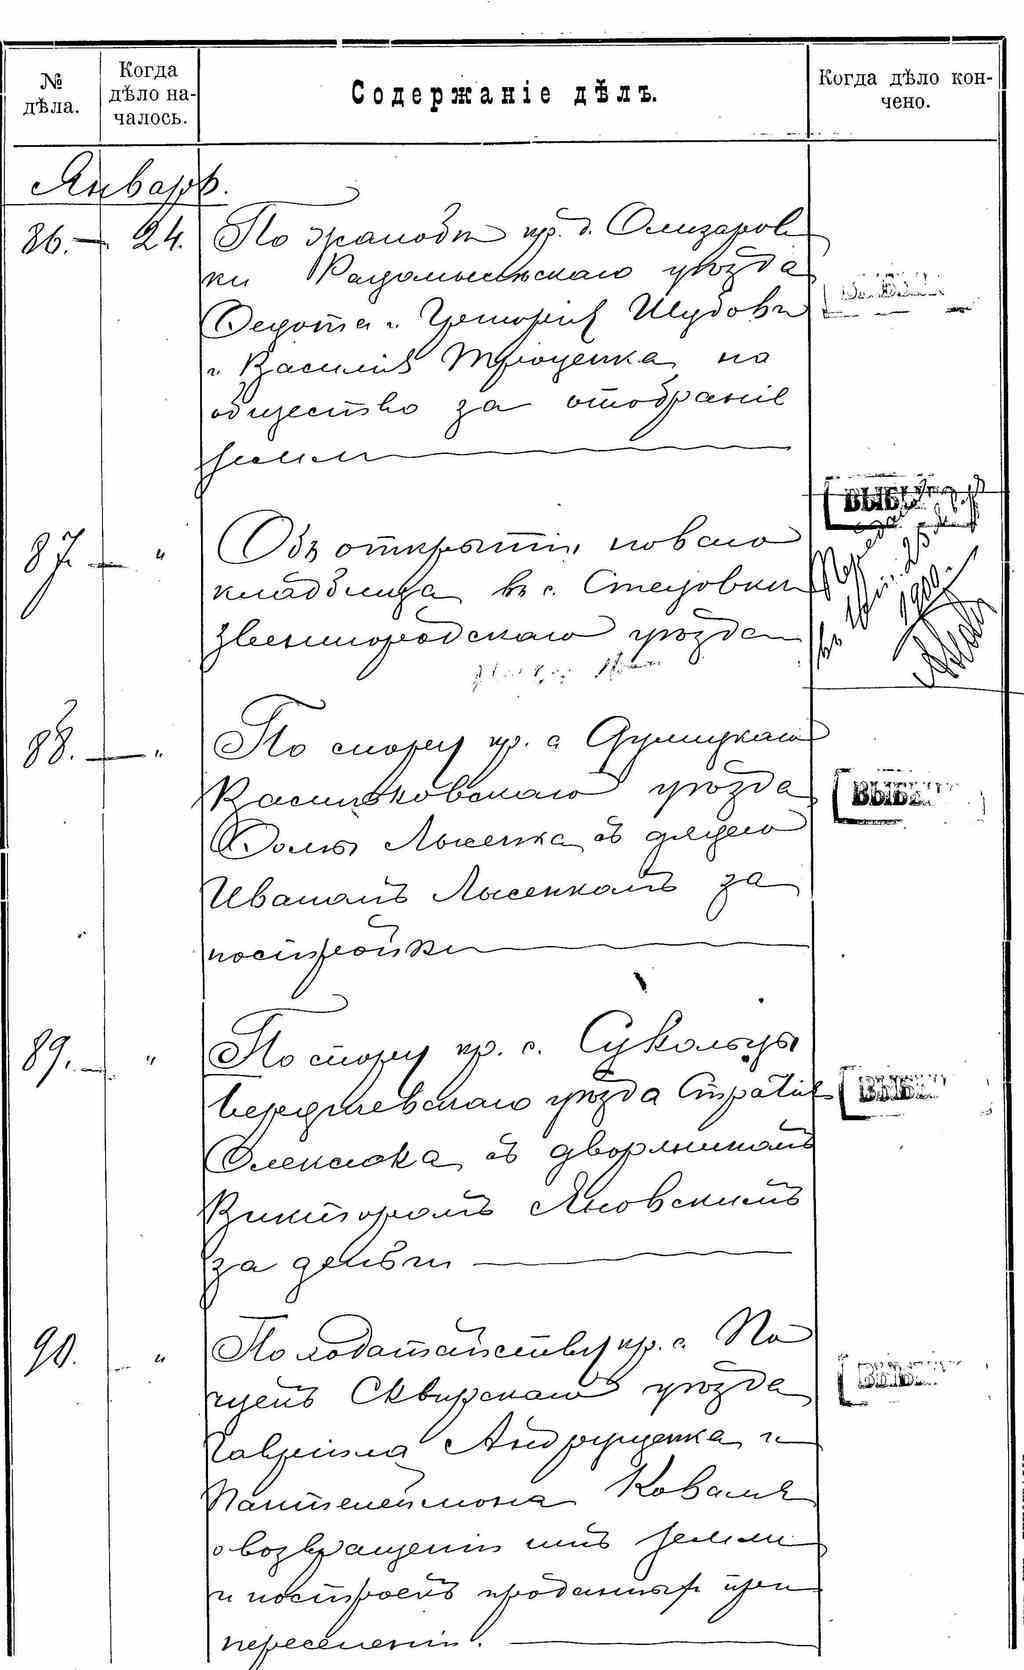 № дѣла.
Когда дѣло на-
чалось.
Содержаніе дѣлъ.
Когда дѣло кон-
чено.
Январь.
86. — 24. По жалобѣ кр. д. Олизаров
ки Радомысльскаго уѣзда
Федота и Григорія Шубовъ
и Василія Троценка на
общество за отобраніе
земли
ВЫБЫ
87. — " Объ открытіи новаго
кладбища въ с. Стецовки
Звенигородскаго уѣзда
Передано
въ 25
1900.
88. — " По спору кр. с Дулицкаго
Васильковскаго уѣзда
Фомы Лысенка съ дядею
Иваномъ Лысенкомъ за
постройки
ВЫБЫ
89. — " По спору кр. с. Сукольцы
Бердичевскаго уѣзда
Олексюка съ дворяниномъ
Викторомъ Яновскимъ
за деньги
ВЫБЫ
90. — " По ходатайству кр. с. По
чуекъ Сквирскаго уѣзда
Гавріила Андрущенка и
Пантелеймона Коваля
о возвращеніи имъ земли
и построекъ проданныхъ при
переселеніи.
ВЫБЫ